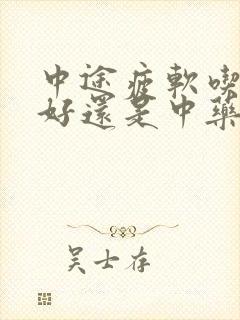 中途疲軟喫
好還是中藥
吴士存